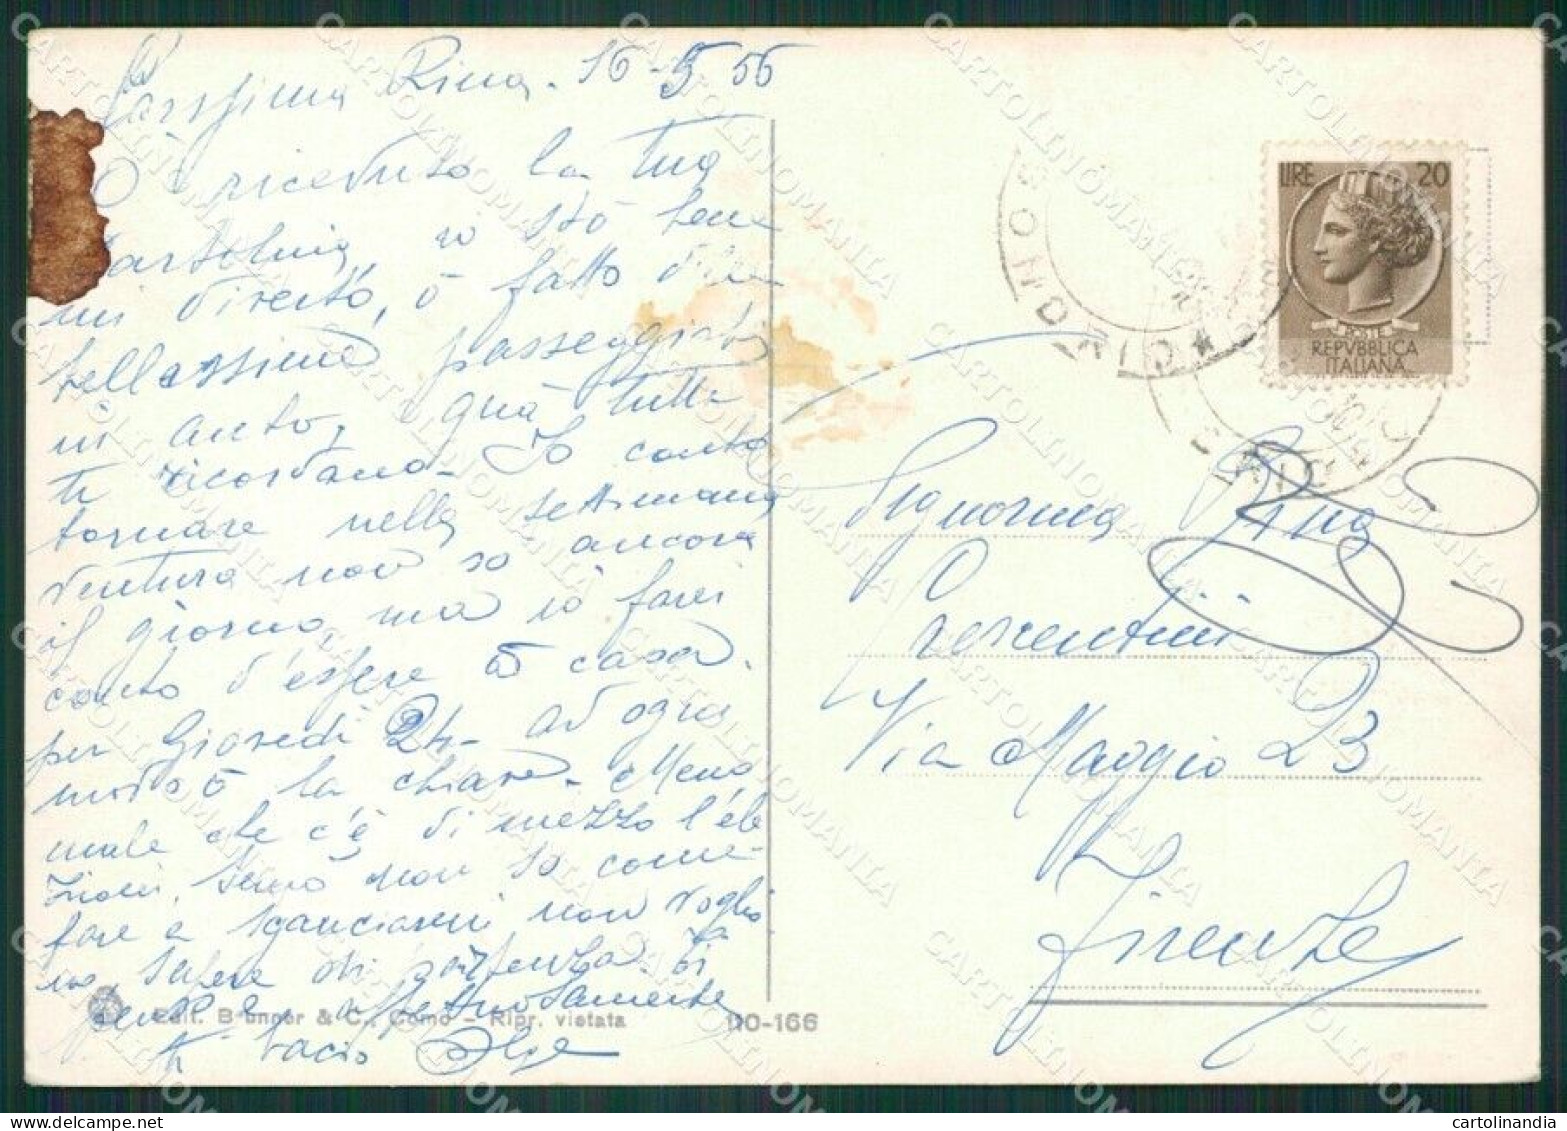 Carissima Rina. 16-5 56
O ricevuto la tua
cartolina, io stò bene
mi diverto, ò fatto delle
bellissime passeggiate
in auto, quà tutti
ti ricordano - Io conto
tornare nella settimana
ventura non so ancora
il giorno, ma io farei
conto d'essere a casa
per Giovedì 24 - ad ogni
modo ò la chiave. Meno
male che c'è di mezzo l'ele
zioni, senò non so come
fare a sganciarmi non voglio
no sapere di partenza. Ti
affettuosamente
ti bacio
Edit. Brunner & C., Como - Ripr. vietata
110-166
LIRE 20
REPVBBLICA
ITALIANA
Signorina Rina
Via Maggio 23
Firenze
CARTOLINOMANIA
www.cartolinandia